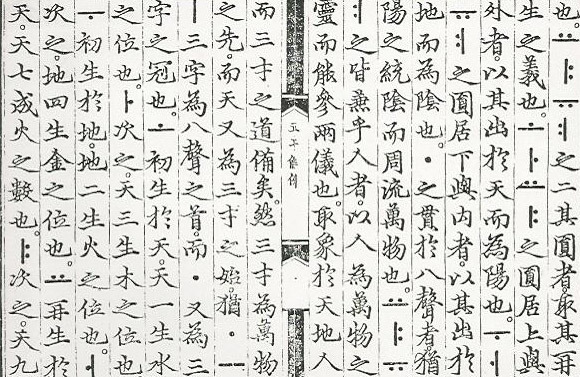 也。ㅛㅑㅠㅕ之二其圓者。取其再
生之義也。ㅗㅏㅛㅑ之圓居上與
外者。以其出於天而為陽也。ㅜㅓ
ㅠㅕ之圓居下與內者。以其出於
地而為陰也。ㆍ之貫於八聲者。猶
陽之統陰而周流萬物也。ㅛㅑㅠ
ㅕ之皆兼乎人者。以人為萬物之
靈而能參兩儀也。取象於天地人
而三才之道備矣。然三才為萬物
之先。而天又為三才之始。猶ㆍㅡ
ㅣ三字為八聲之首。而ㆍ又為三
字之冠也。ㅗ初生於天。天一生水
之位也。ㅏ次之。天三生木之位也。
ㅜ初生於地。地二生火之位也。ㅓ
次之。地四生金之位也。ㅛ再生於
天。天七成火之數也。ㅑ次之。天九